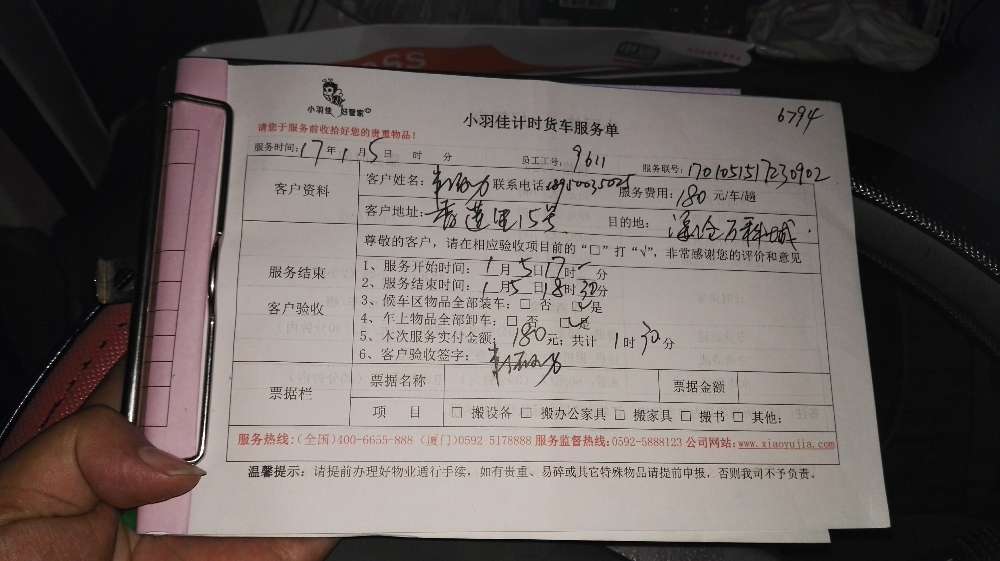 6794
小羽佳 好管家
小羽佳计时货车服务单
请您于服务前收拾好您的贵重物品!
服务时间:17年1月5日 时 分 员工工号:9611 服务联号:170105151723 0902
客户资料 客户姓名: 联系电话 服务费用:180元/车/趟
客户地址:香莲里15号 目的地:
尊敬的客户,请在相应验收项目前的“□”打“√”,非常感谢您的评价和意见
服务结束
客户验收
1、服务开始时间:1月5日17时 分
2、服务结束时间:1月5日18时30分
3、候车区物品全部装车:□ 否 ☑是
4、车上物品全部卸车:□ 否 ☑是
5、本次服务实付金额:180元;共计 1时30分
6、客户验收签字:
票据栏 票据名称 票据金额
项 目 □ 搬设备 □ 搬办公家具 □ 搬家具 □ 搬书 □ 其他:
服务热线:(全国)400-6655-888 (厦门)0592 5178888 服务监督热线:0592-5888123 公司网站:www.xiaoyujia.com
温馨提示:请提前办理好物业通行手续,如有贵重、易碎或其它特殊物品请提前申报,否则我司不予负责。